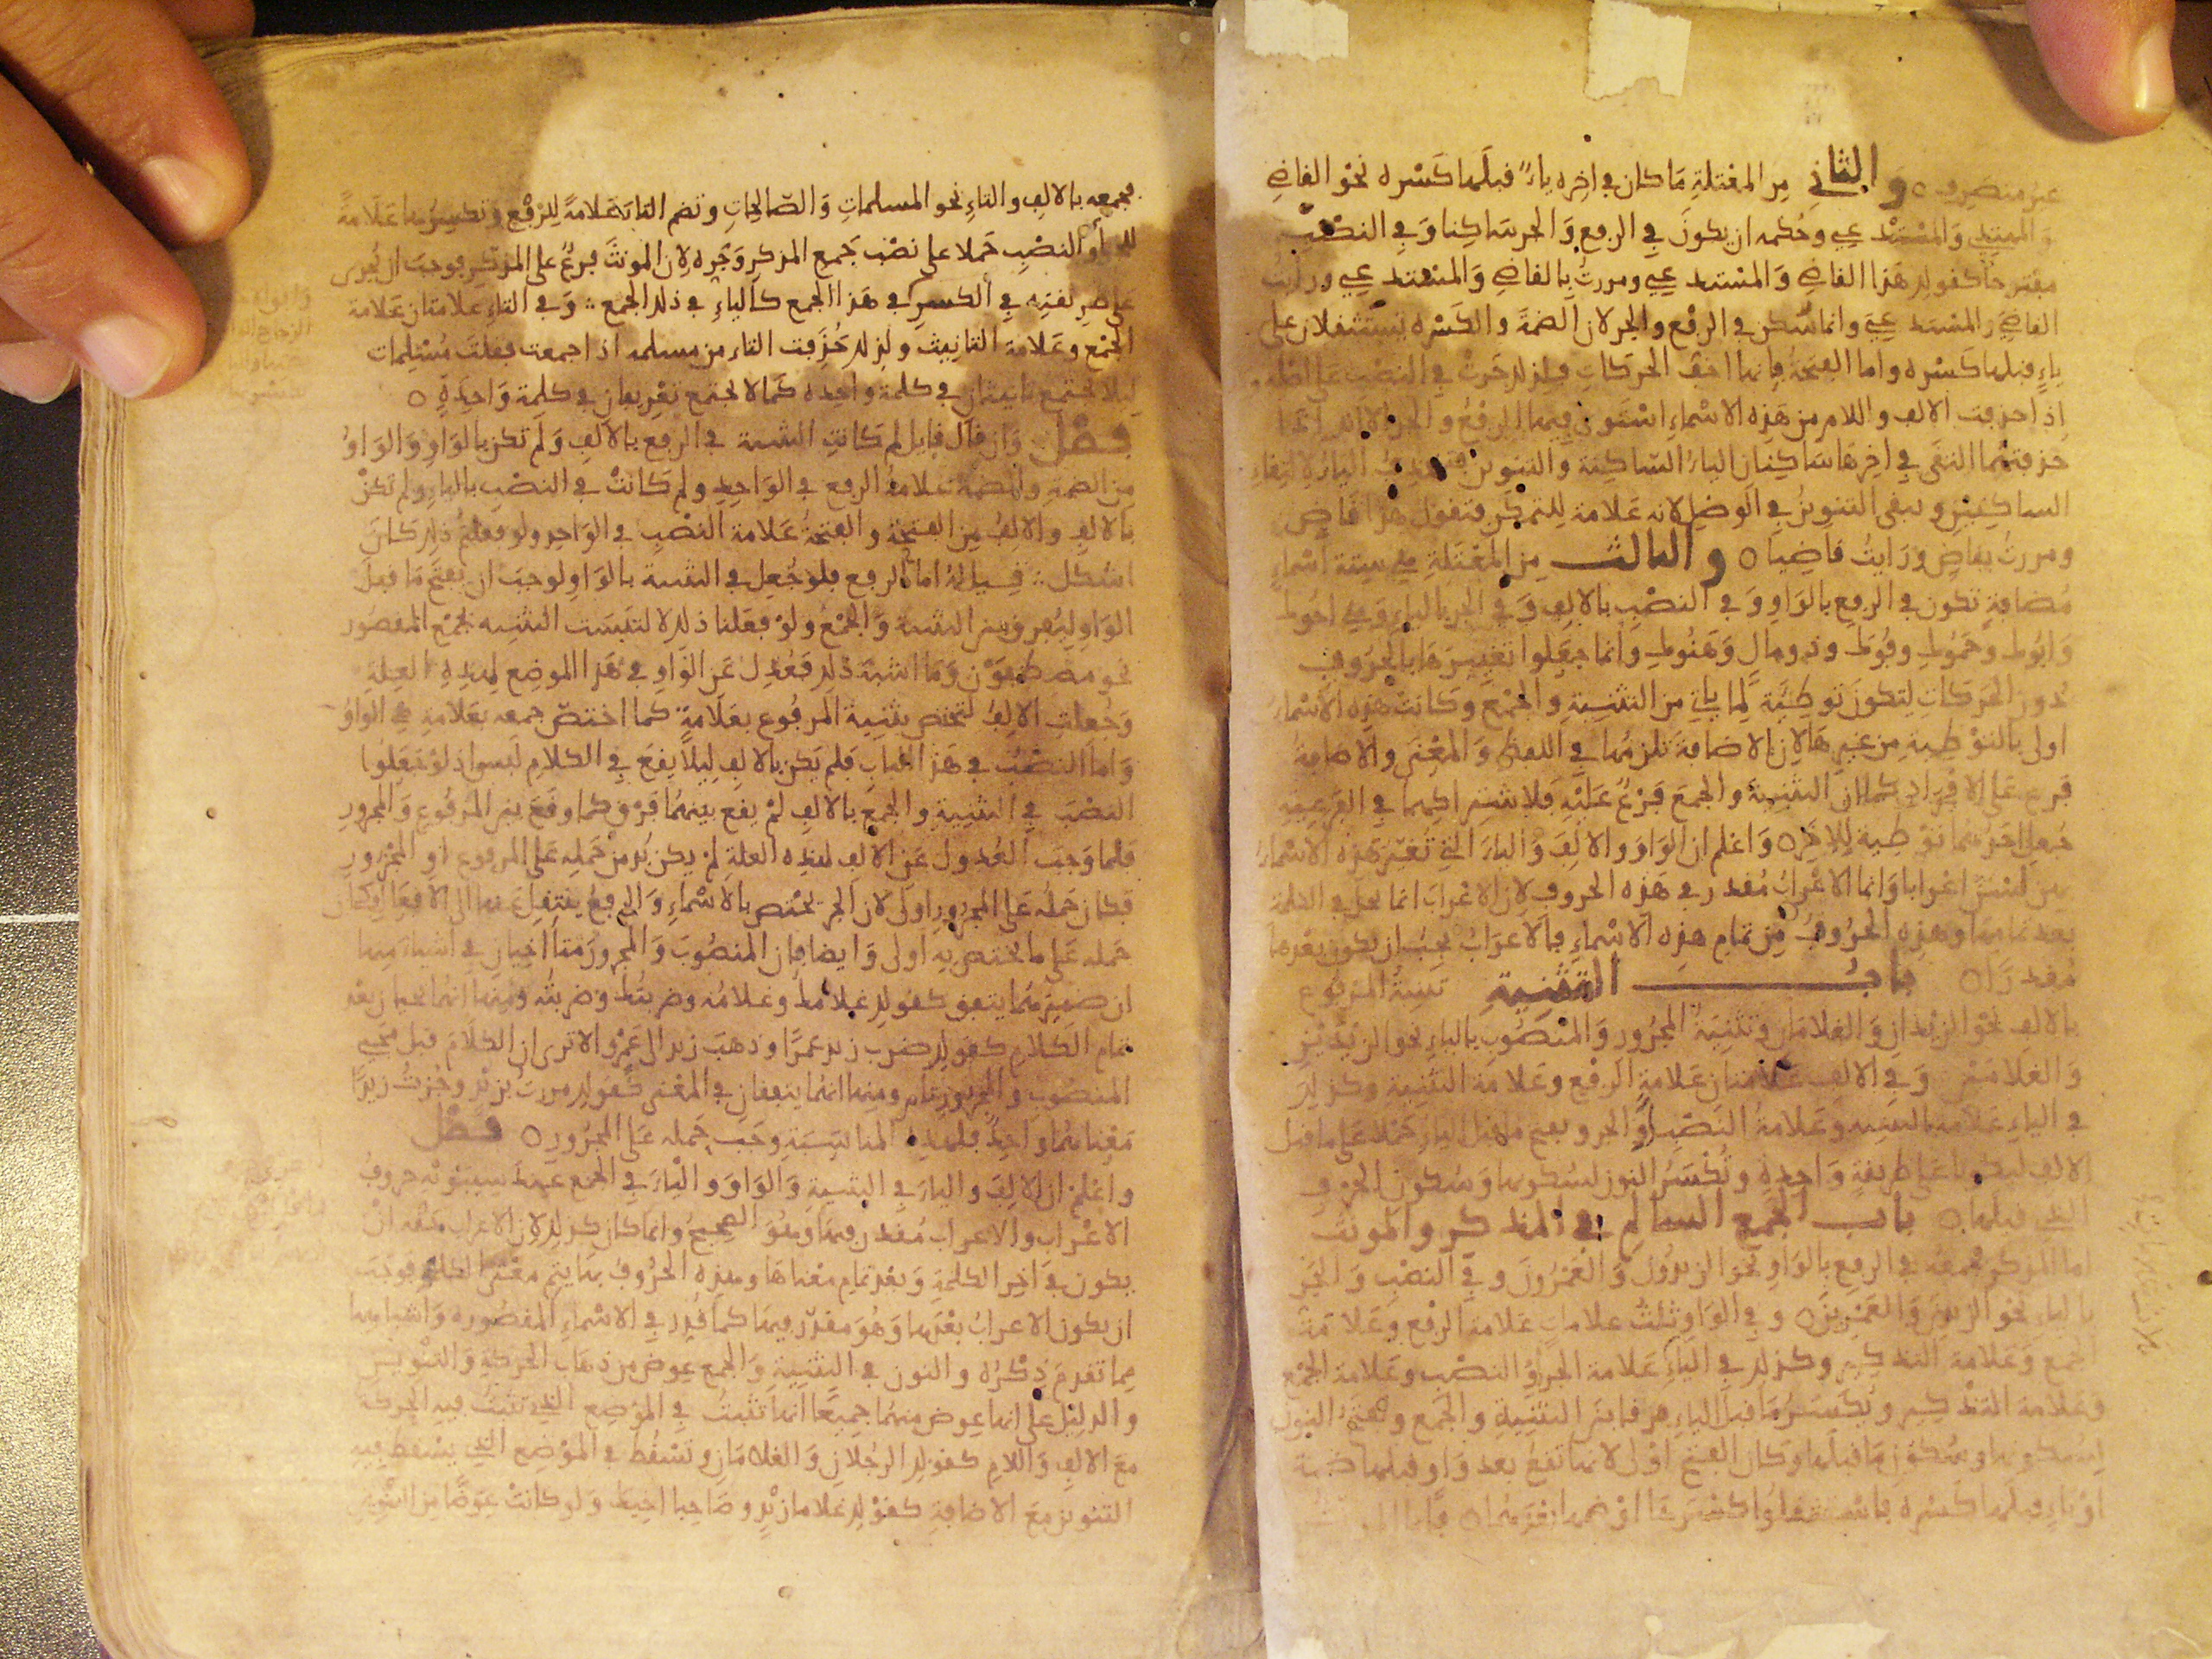 غير منصرف ٥ والثاني من المعتلة ما كان في اخره ياءٌ قبلها كسره نحو القاضي
والمستدعي وحكمه ان يكون في الرفع والجر ساكنا وفي النصب
مفتوحا كقولك هذا القاضي والمستدعي ومررت بالقاضي والمستدعي ورايت
القاضيَ والمستدعيَ وانما سكن في الرفع والجر لان الضمة والكسره تستثقلان على
ياءٍ قبلها كسره واما الفتحة فانها اخف الحركات فلذلك جرت في النصب على اصله
اذا حذفت الالف واللام من هذه الاسماء استوى فيها الرفع والجر
حذفتهما التقى في اخرها ساكنان الياء الساكنة والتنوين فتحذف الياء لالتقاء
الساكنين ويبقى التنوين في الوصل لانه علامة للتمكن فتقول هذا قاضٍ
ومررت بقاضٍ ورايت قاضيا ٥ والثالث من المعتلة هي ستة اسماءٍ
مضافةٍ تكون في الرفع بالواو وفي النصب بالالف وفي الجر بالياء وهي اخوك
وابوك وحموك وفوك وذو مال وهنوك وانما جعلوا تغييرها بالحروف
دون الحركات لتكون توطية لما ياتي من التثنية والجمع وكانت هذه الاسماء
اولى بالتوطية من غيرها لان الاضافة تلزمها في اللفظ والمعنى والاضافة
فرع على الافراد كما ان التثنية والجمع فرع عليه فلاشتراكهما في الفرعية
جعل احدهما توطية للاخر ٥ واعلم ان الواو والالف والياء التي تغير هذه الاسماء
ليس اعرابا وانما الاعراب مقدر في هذه الحروف لان الاعراب انما يحل في الكلمة
بعد تمامها وهذه الحروف من تمام هذه الاسماء فالاعراب يجب ان يكون بعدها
مقدرا ٥ باب التثنية تثنية المرفوع
بالالف نحو الزيدان والغلامان وتثنية المجرور والمنصوب بالياء نحو الزيدين
والغلامين وفي الالف علامتان علامة الرفع وعلامة التثنية وكذلك
في الياء علامة التثنيه وعلامة النصب او الجر ويفتح ما قبل الياء حملا على ما قبل
الالف ليكونا على طريقةٍ واحدةٍ وتكسر النون لسكونها وسكون الحرف
الذي قبلها ٥ باب الجمع السالم في المذكر والمونث
اما المذكر فجمعه في الرفع بالواو نحو الزيدون والعمرون وفي النصب والجر
بالياء نحو الزيدين والعمرين ٥ وفي الواو ثلث علامات علامة الرفع وعلامة
الجمع وعلامة التذكير وكذلك في الياء علامة الجر او النصب وعلامة الجمع
وعلامة التذكير ويكسر ما قبل الياء فرقا بين التثنية والجمع وفتح النون
لسكونها وسكون ما قبلها وكان الفتح اولى لانها تقع بعد واو قبلها ضمة
او ياءٍ قبلها كسره فاستثقلوا كسرها او ضمها بعدهما ٥ فاما المونث
فجمعه بالالف والتاء نحو المسلمات والصالحات وتضم التاء علامةً للرفع وتكسرها علامةً
للجر او النصب حملا على نصب جمع المذكر وجره لان المونث فرع على المذكر فوجب ان يجرى
على طريقته في الكسر في هذا الجمع كالياء في ذلك الجمع وفي التاء علامتان علامة
الجمع وعلامة التانيث ولذلك حذفت التاء من مسلمه اذا جمعت فقلت مسلمات
ليلا يجتمع تانيثان في كلمة واحدة كما لا يجتمع تعريفان في كلمة واحدةٍ ٥
فصل وان قال قايل لم كانت التثنية في الرفع بالالف ولم تكن بالواو والواو
من الضمة والضمة علامة الرفع في الواحد ولم كانت في النصب بالياء ولم تكن
بالالف والالف من الفتحة والفتحة علامة النصب في الواحد ولو فعلتم ذلك كان
اشكل قيل له اما الرفع فلو جعل في التثنية بالواو لوجب ان يفتح ما قبل
الواو ليفرق بين التثنية والجمع ولو فعلنا ذلك لالتبست التثنيه بجمع المقصور
نحو مصطفون وما اشبه ذلك فعدل عن الواو في هذا الموضع لهذه العلة
وجعلت الالف لتختص تثنية المرفوع بعلامةٍ كما اختص جمعه بعلامةٍ هي الواو
واما النصب في هذا الباب فلم يكن بالالف ليلا يقع في الكلام لبس اذ لو جعلوا
النصب في التثنية والجمع بالالف لم يقع بينهما فرق كما وقع بين المرفوع والمجرور
فلما وجب العدول عن الالف لهذه العلة لم يكن بد من حمله على المرفوع او المجرور
فكان حمله على المجرور اولى لان الجر يختص بالاسماء والرفع ينتقل عنها الى الافعال فكان
حمله على ما يختص به اولى وايضا فان المنصوب والمجرور متآخيان في اشياء منها
ان ضميرهما يتفق كقولك غلامك وغلامه وضربتك وضربته ومنها انهما يجيان بعد
تمام الكلام كقولك ضرب زيد عمرًا وذهب زيد الى عمرو الا ترى ان الكلام قبل مجي
المنصوب والمجرور تام ومنها انهما يتفقان في المعنى كقولك مررت بزيد وجزت زيدًا
معناهما واحد فلهذه المناسبة وجب حمله على المجرور ٥ فصل
واعلم ان الالف والياء في التثنية والواو والياء في الجمع عند سيبويه حروف
الاعراب والاعراب مقدر فيها وهو الصحيح وانما كان كذلك لان الاعراب حقه ان
يكون في اخر الكلمة وبعد تمام معناها وهذه الحروف بها يتم معنى الكلمة فوجب
ان يكون الاعراب بعدها وهو مقدر فيها كما قدر في الاسماء المقصوره واشباهها
مما تقدم ذكره والنون في التثنية والجمع عوض من ذهاب الحركة والتنوين
والدليل على انها عوض منهما جميعًا انها تثبت في الموضع الذي تثبت فيه الحركة
مع الالف واللام كقولك الرجلان والغلامان وتسقط في الموضع الذي يسقط فيه
التنوين مع الاضافة كقولك غلاما زيدٍ وصاحبا اخيك ولو كانت عوضًا من التنوين